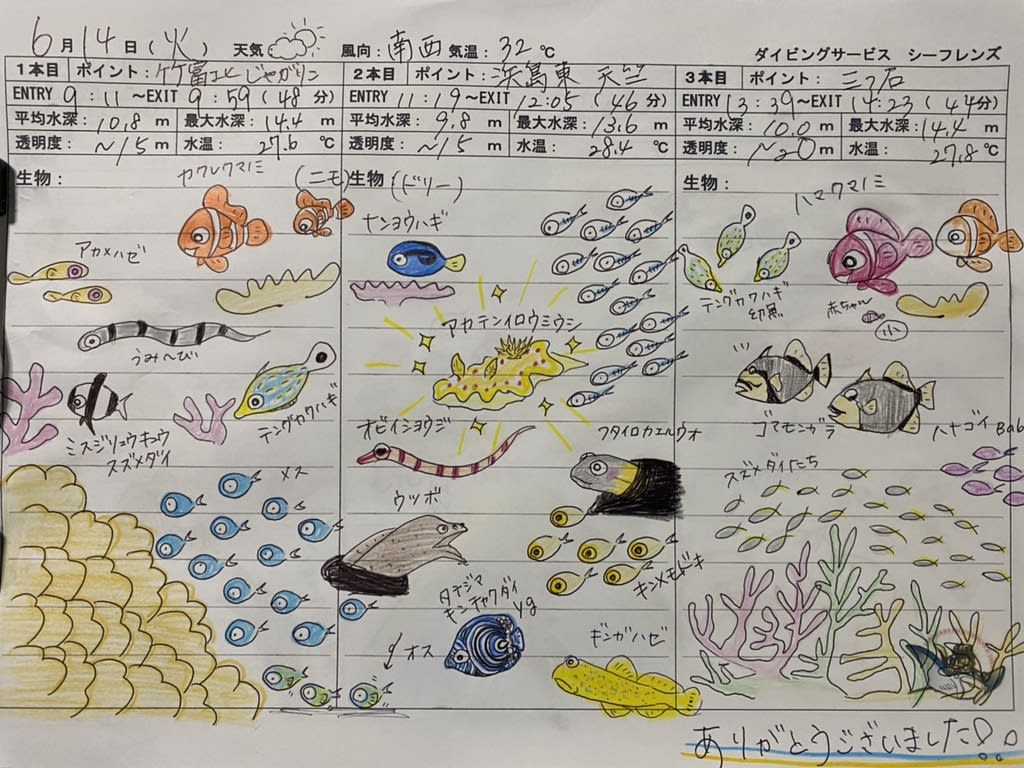 6月14日(火) 天気 風向:南西 気温:32℃
ダイビングサービス シーフレンズ
1本目 ポイント:竹富エビじゃがリン
ENTRY 9:11~EXIT 9:59(48分)
平均水深:10.8m 最大水深:14.4m
透明度:~15m 水温:27.6℃
生物:
カクレクマノミ
(ニモ)
アカメハゼ
うみへび
ミスジリュウキュウ
スズメダイ
テングカワハギ
メス
2本目 ポイント:浜島東 天竺
ENTRY 11:19~EXIT 12:05(46分)
平均水深:9.8m 最大水深:13.6m
透明度:~15m 水温:28.4℃
生物:(ドリー)
ナンヨウハギ
アカテンイロウミウシ
オビイシヨウジ
フタイロカエルウオ
ウツボ
キンメモドキ
タテジマ
キンチャクダイ
yg
オス
ギンガハゼ
3本目 ポイント:三ツ石
ENTRY 13:39~EXIT 14:23(44分)
平均水深:10.0m 最大水深:14.4m
透明度:~20m 水温:27.8℃
生物:
ハマクマノミ
テングカワハギ
幼魚
赤ちゃん
小
ゴマモンガラ
ハナゴイ Bab
スズメダイたち
ありがとうございました!!